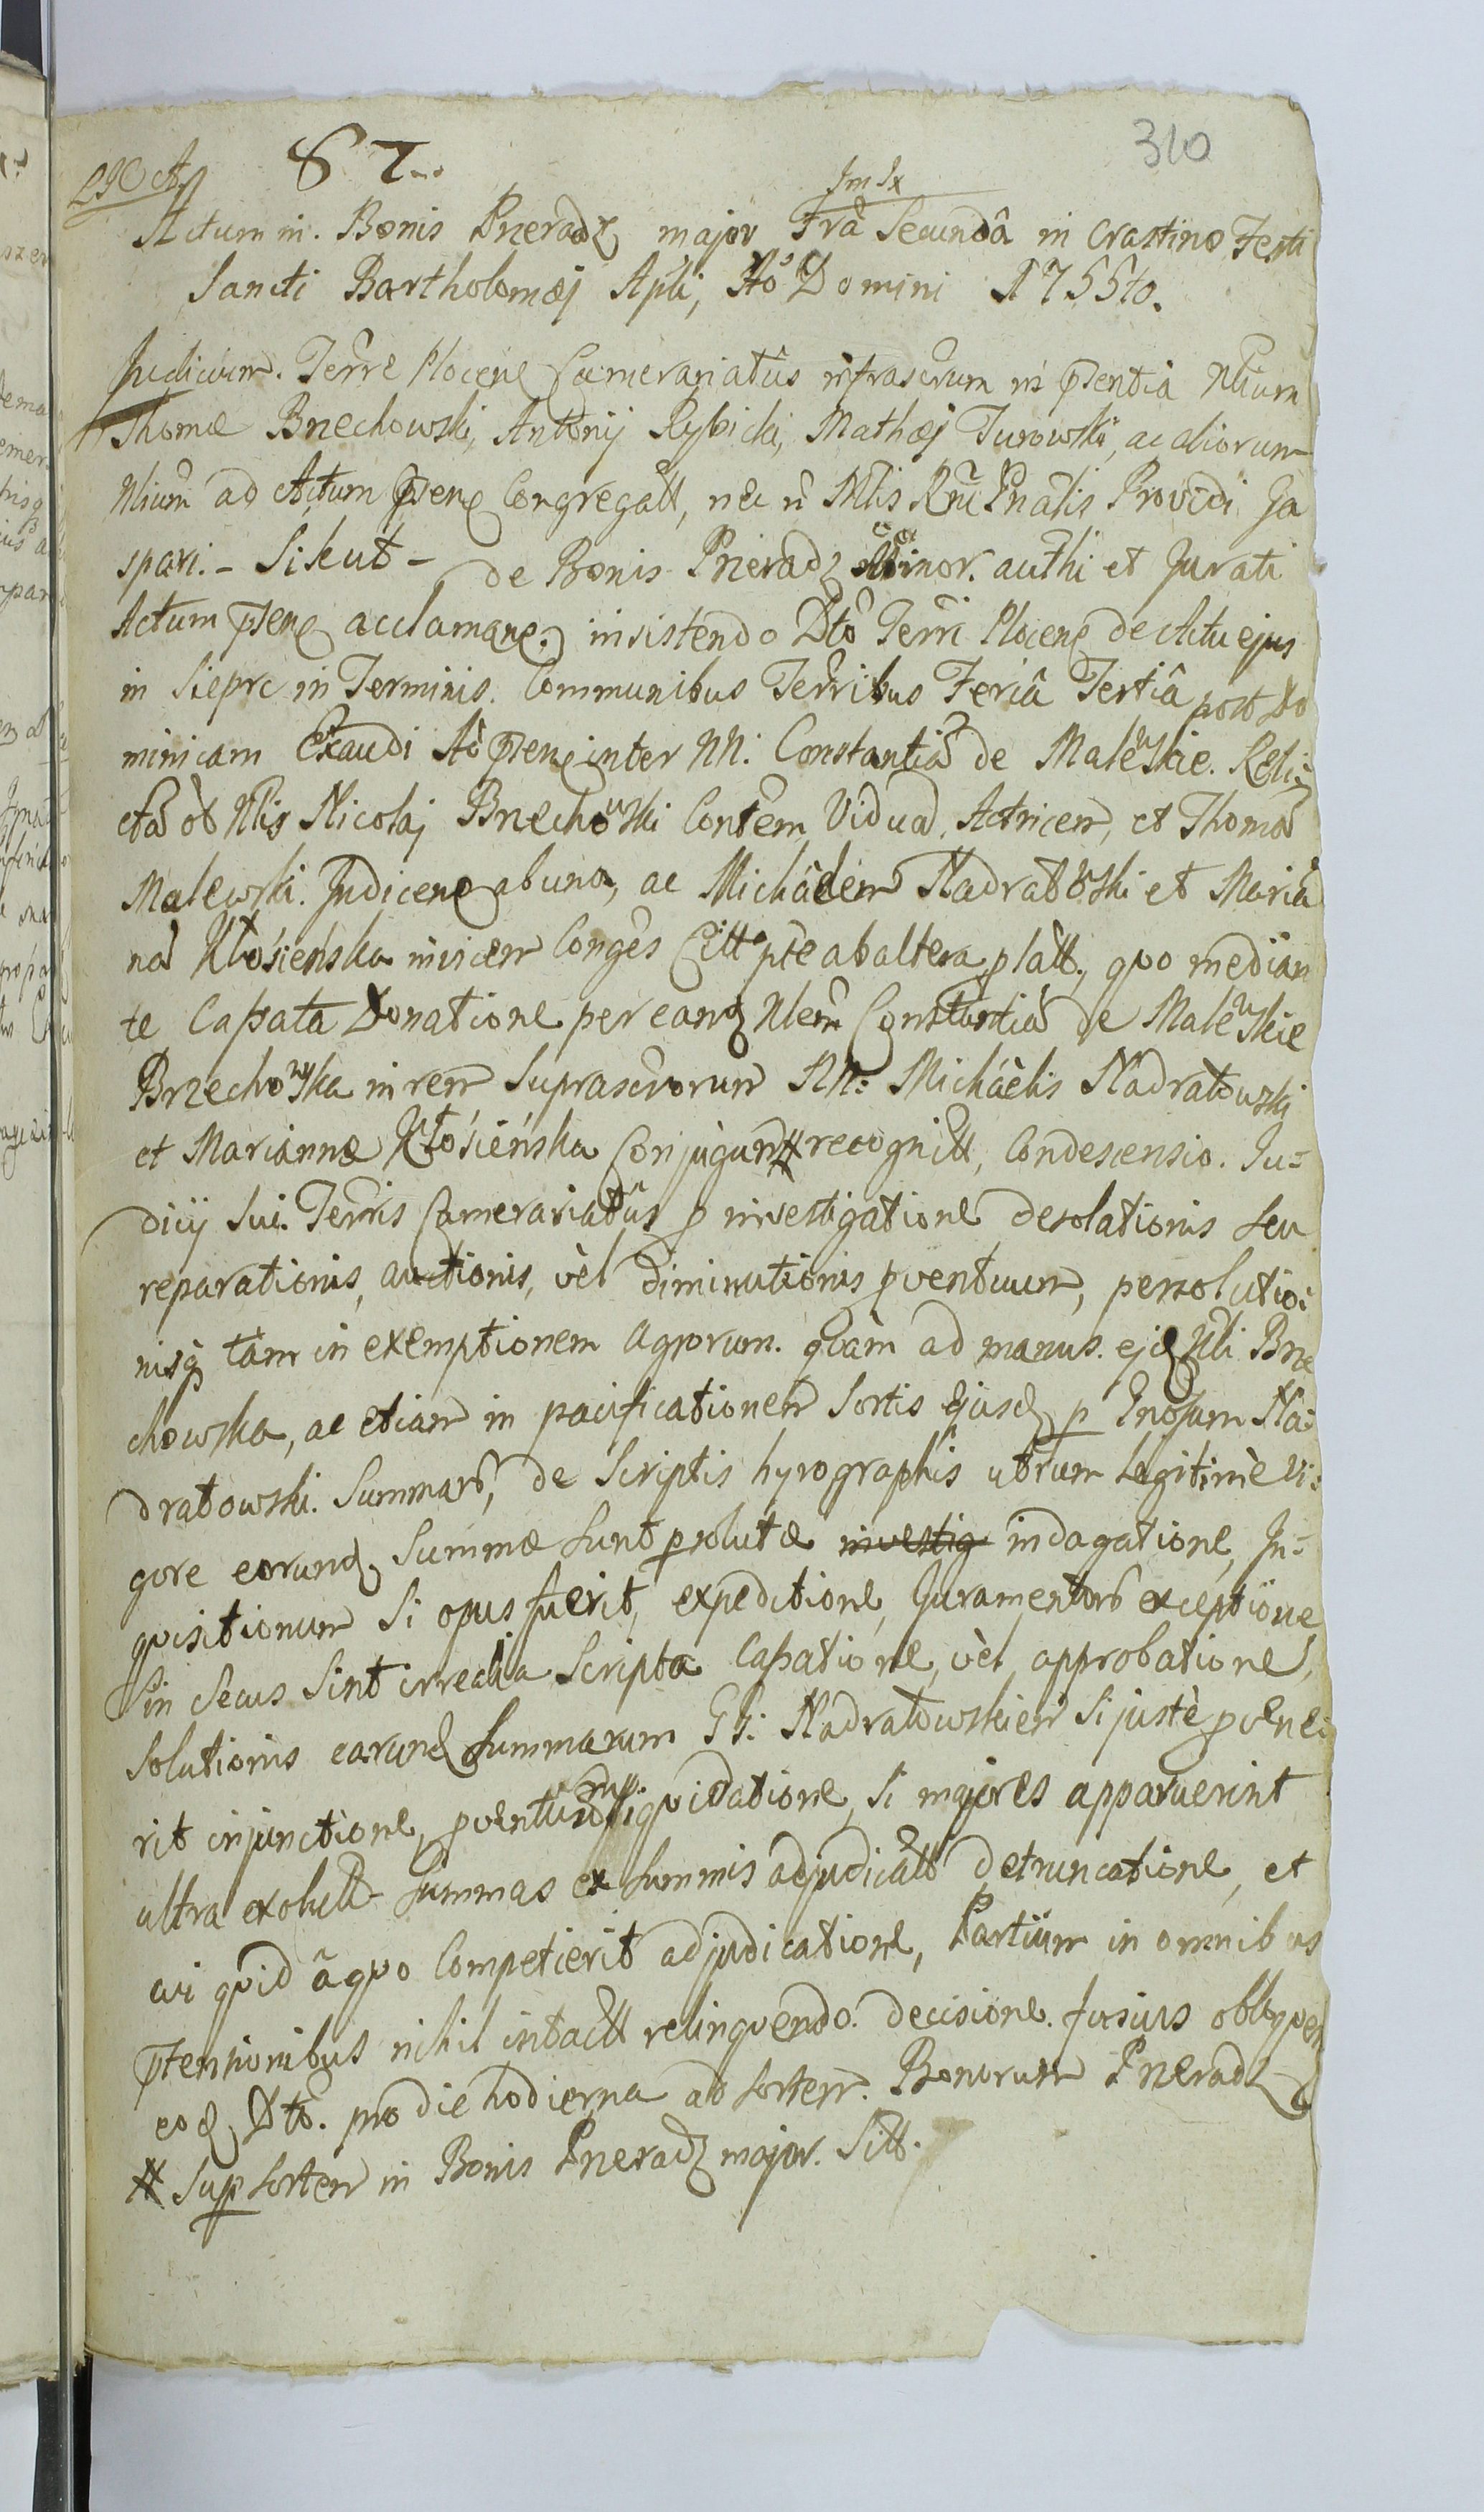 310
87...
Im Ix
Actum in Bonis Pneradz major Frâ Secundâ in Crastino Festi
Sancti Bartholomæj Apli, Aô Domini 1755to.
Judicium. Terre Plocen Camerariatûs infrascrum in pntia Nlium
Thomæ Brzechowski, Antonij Rybicki, Mathæj Turowski, ac aliorum
Nlium ad Actum psen Congregatt, nec n Mlis Rni Gnalis Providi Ga
spari. - Sikut - de Bonis Pneradz minor. authi et Jurati
Actum psen acclaman. insistendo Dtô Terri Plocen de Actu ejus
in Sieprc in Terminis Communibus Terribus Feriâ Tertiâ post Do
minicam Exaudi Aô psen inter NN. Constantiã de Malewskie. Reli=
ctã ôt Nlis Nicolaj Brzechowski Contem Viduã, Actricem, et Thomã
Malewski. Judicene ab una, ac Michâelem Nadratowski et Maria
nã Kłosieńska invicem Conges Citt pte ab altera platt, quo median
te Cassata Donatione per eand Nlem Constantiã de Malewskie
Brzechowska in rem Suprascrorum NN: Michâelis Nadratowski
et Mariannæ Kłosieńska Conjugum # recognitt, Condescensio. Ju=
dicij Sui. Terris Camerariatûs p investigatione desolationis seu
reparationis, auctionis, vèl diminutionis pventuum, persolutio=
nisq tàm in exemptionem agrorum. quàm ad manus. ejd Nli Brze
chowska, ac etiam in pacificationem Sortis Ejusd p Gnosum Na=
dratowski. Summarũ, de Scriptis hyrographis utrum Legitimè Vi=
gore eorund Summæ sunt psolutæ investig indagatione, In=
quisitionum Si opus fuerit, expeditione, Juramentorũ exceptione
Sin Secus Sint irrealia Scripta Cassatione, vèl approbatione,
Solutionis earund Summarum GG: Nadratowskiem Si justè pvene
rit injunctione, pventuum liquidatione, Si majores apparuerint
ultra exolutt Summas ex Summis adjudicatt detruncatione, et
cui quid à quo Competierit adjudicatione, Partium in omnibus
ptensionibus nihil intactt relinquendo. decisione. fusius obloquen
eod Dtô. pro die hodierna ad Sortem. Bonorum Pneradz
# Sup Sortem in Bonis Pneradz major. Sitt.